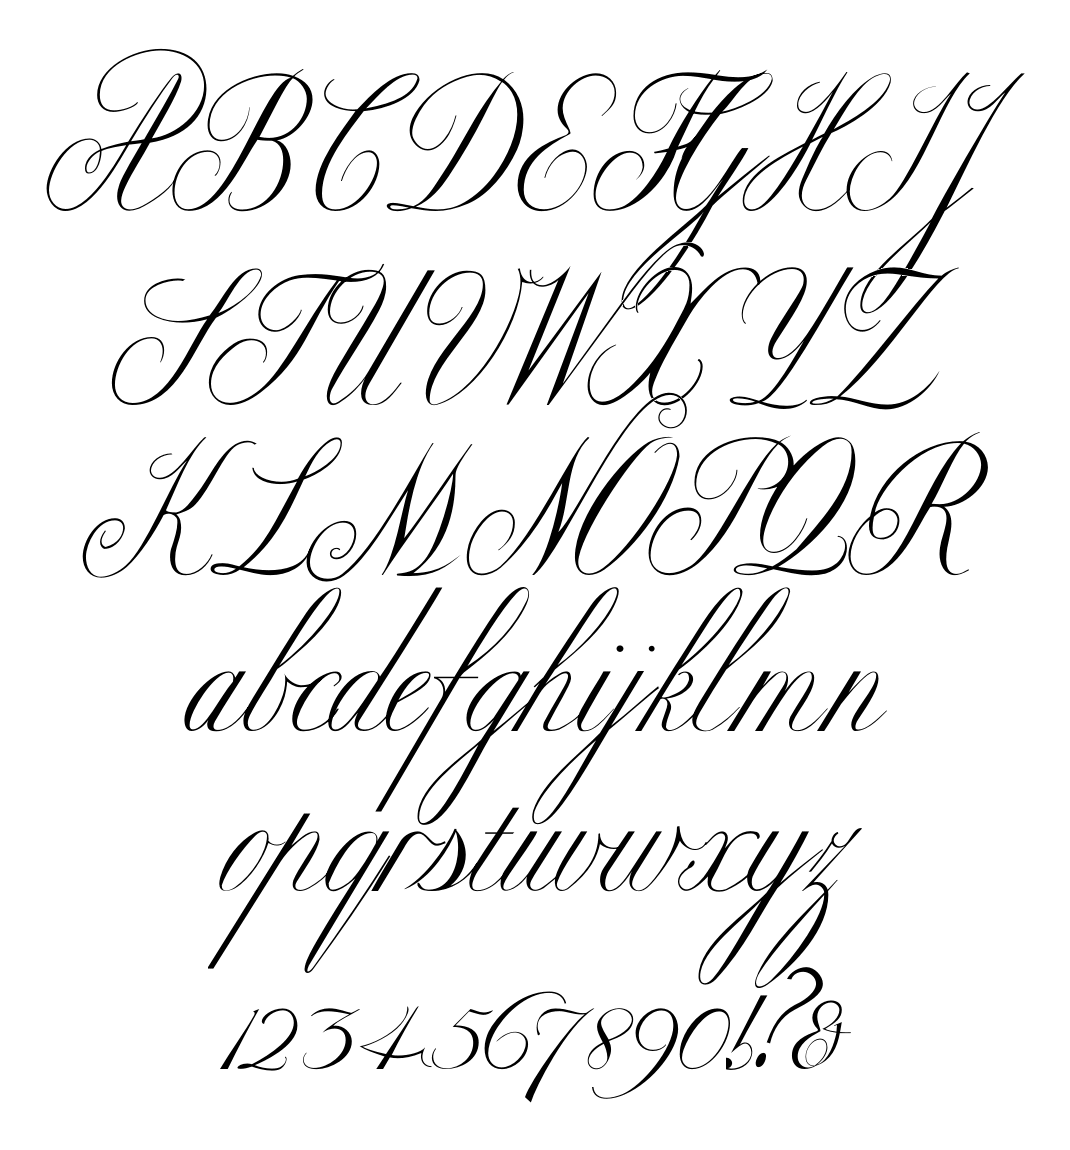 ABCDEFGHIJ
STUVWXYZ
KLMNOPQR
abcdefghijklmn
opqrstuvwxyz
1234567890!?&